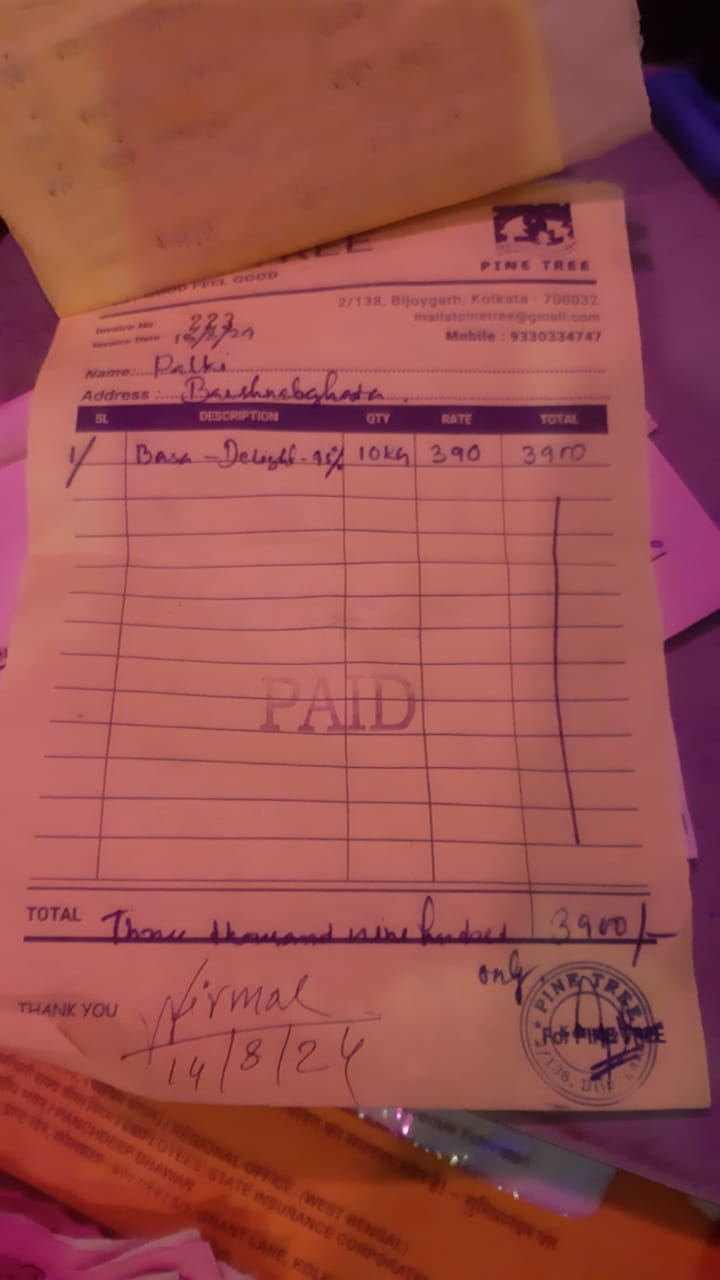 REE
PINE TREE
FEEL GOOD
2/138, Bijoygarh, Kolkata - 700032
mailatpinetree@gmail.com
Mobile : 9330334747
Invoice No 223
Invoice Date
Name: Palki
Address :
SL DESCRIPTION QTY RATE TOTAL
1/ Basa - Delight - 95% 10 KG 390 3900
PAID
TOTAL Three thousand nine hundred 3900/-
only
THANK YOU Nirmal
14/8/24
PINE TREE
For PINE TREE
REGIONAL OFFICE (WEST BENGAL)
EMPLOYEES' STATE INSURANCE CORPORATION
PANCHDEEP BHAWAN
GRANT LANE,